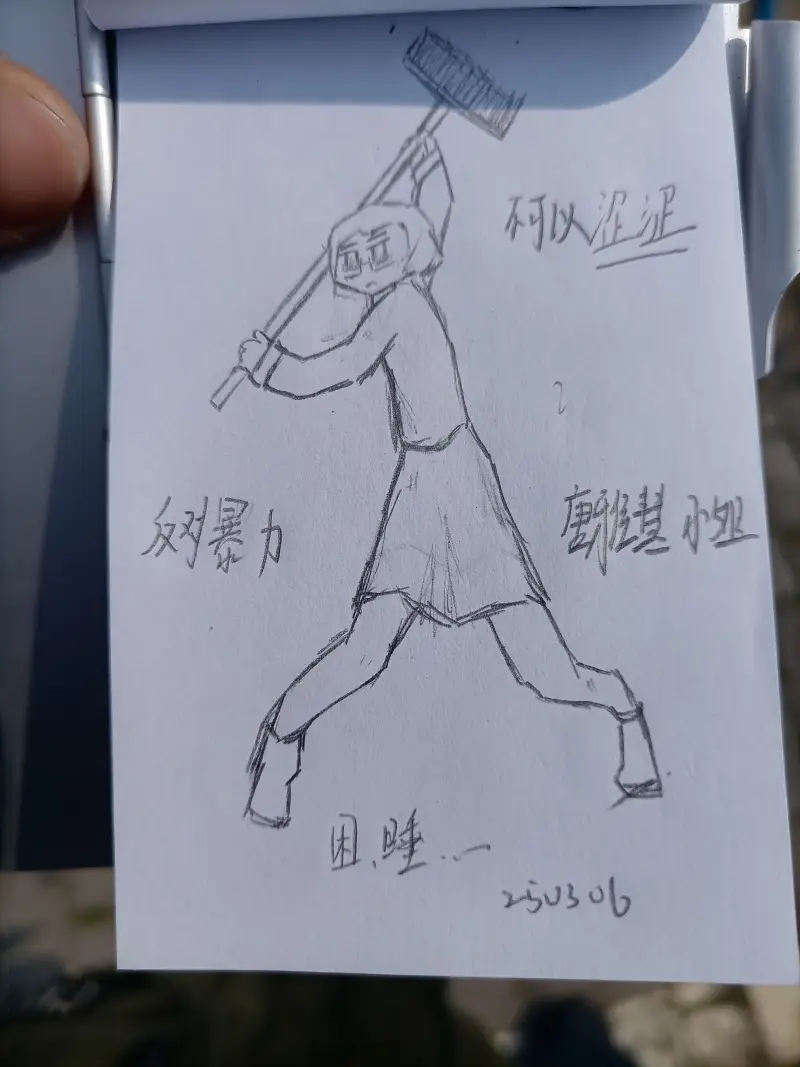 不可以涩涩
反对暴力
唐雅慧小姐
困、睡...
250306